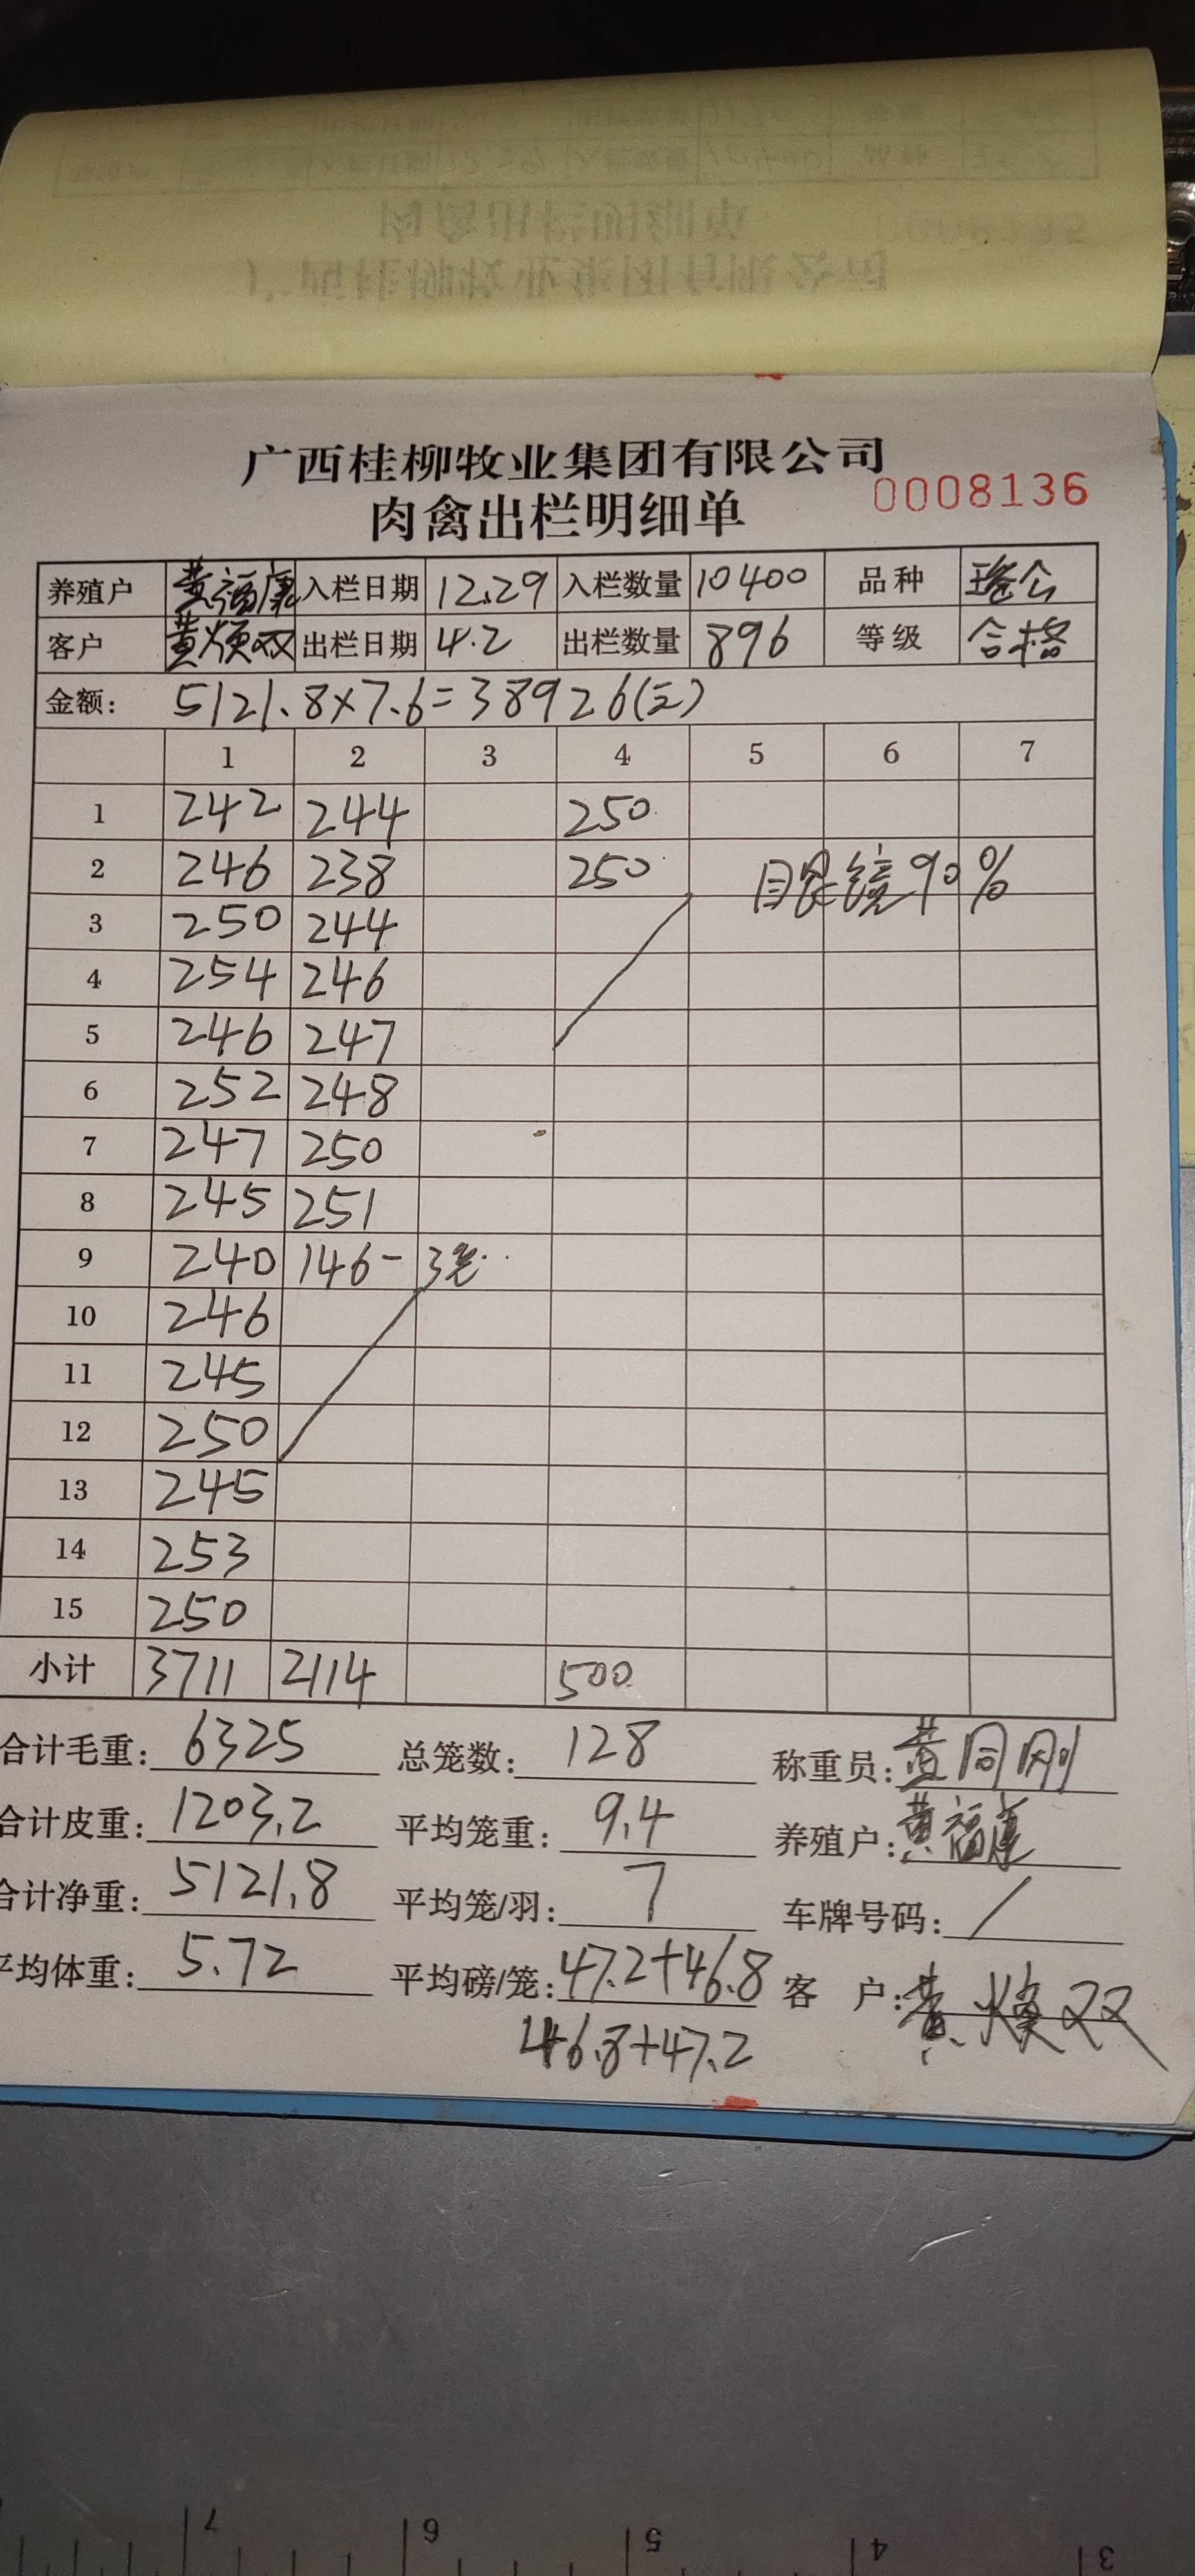 广西桂柳牧业集团有限公司
肉禽出栏明细单 0008136
养殖户 黄福康 入栏日期 12.29 入栏数量 10400 品种 瑶公
客户 黄焕双 出栏日期 4.2 出栏数量 896 等级 合格
金额: 5121.8×7.6=38926(元)
1 2 3 4 5 6 7
1 242 244 250
2 246 238 250 眼镜90%
3 250 244
4 254 246
5 246 247
6 252 248
7 247 250
8 245 251
9 240 146- 3笼
10 246
11 245
12 250
13 245
14 253
15 250
小计 3711 2114 500
合计毛重: 6325 总笼数: 128 称重员: 黄同刚
合计皮重: 1203.2 平均笼重: 9.4 养殖户: 黄福康
合计净重: 5121.8 平均笼/羽: 7 车牌号码: /
平均体重: 5.72 平均磅/笼: 47.2+46.8 客 户: 黄焕双
46.8+47.2
7 6 5 4 3